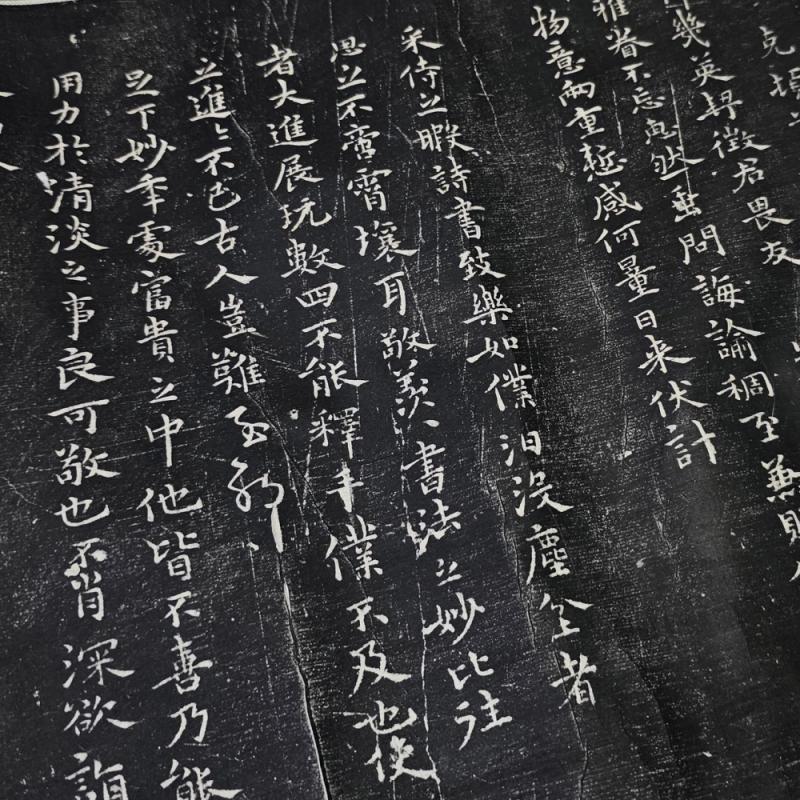 克
幾英婦徴君畏友
雅眷不忘惠然垂問誨諭稠至兼貺
物意兩重慙感何量日来伏計
采侍之暇詩書致樂如僕汩没塵坌者
思之不啻霄壤耳敬羨書法之妙比往
者大進展玩數四不能釋手僕不及也使
之進〻不已古人豈難至邪
足下妙年處富貴之中他皆不喜乃能
用力於清淡之事良可敬也不肖深欲詣